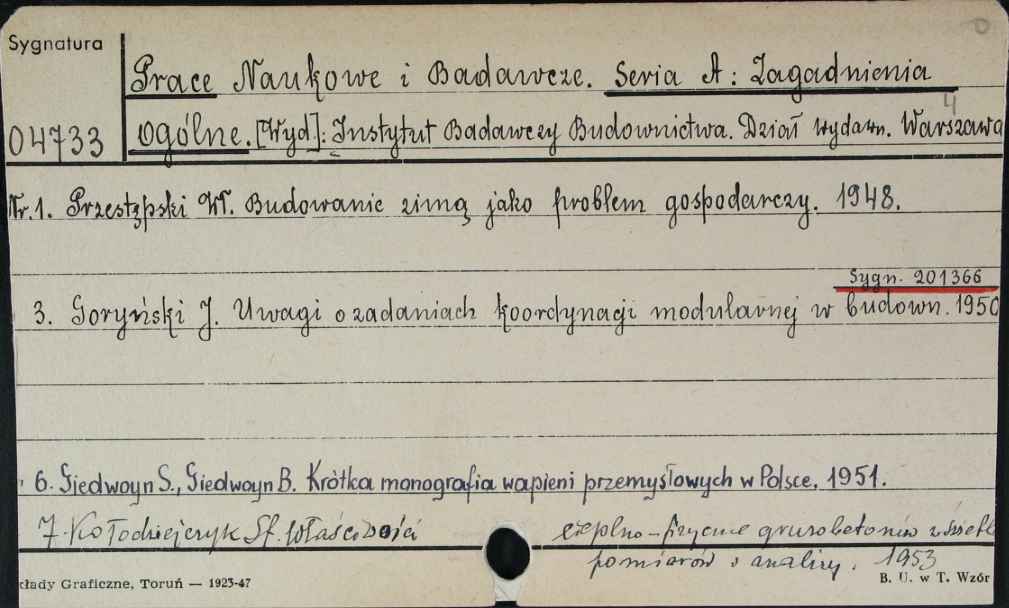 0
Sygnatura
Prace Naukowe i Badawcze. Seria A: Zagadnienia
4
04733 ogólne. [Wyd]: Instytut Badawczy Budownictwa. Dział wydawn. Warszawa
Nr. 1. Przestępski Wł. Budowanie zimą jako problem gospodarczy. 1948.
Sygn. 201366
3. Goryński J. Uwagi o zadaniach koordynacji modularnej w budown. 1950
6. Giedwoyn S., Giedwoyn B. Krótka monografia wapieni przemysłowych w Polsce. 1951.
7. Kołodziejczyk St. Właściwości cieplno-fizyczne gruzobetonów w świetle
pomiarów i analizy. 1953
kłady Graficzne, Toruń — 1925-47 B. U. w T. Wzór